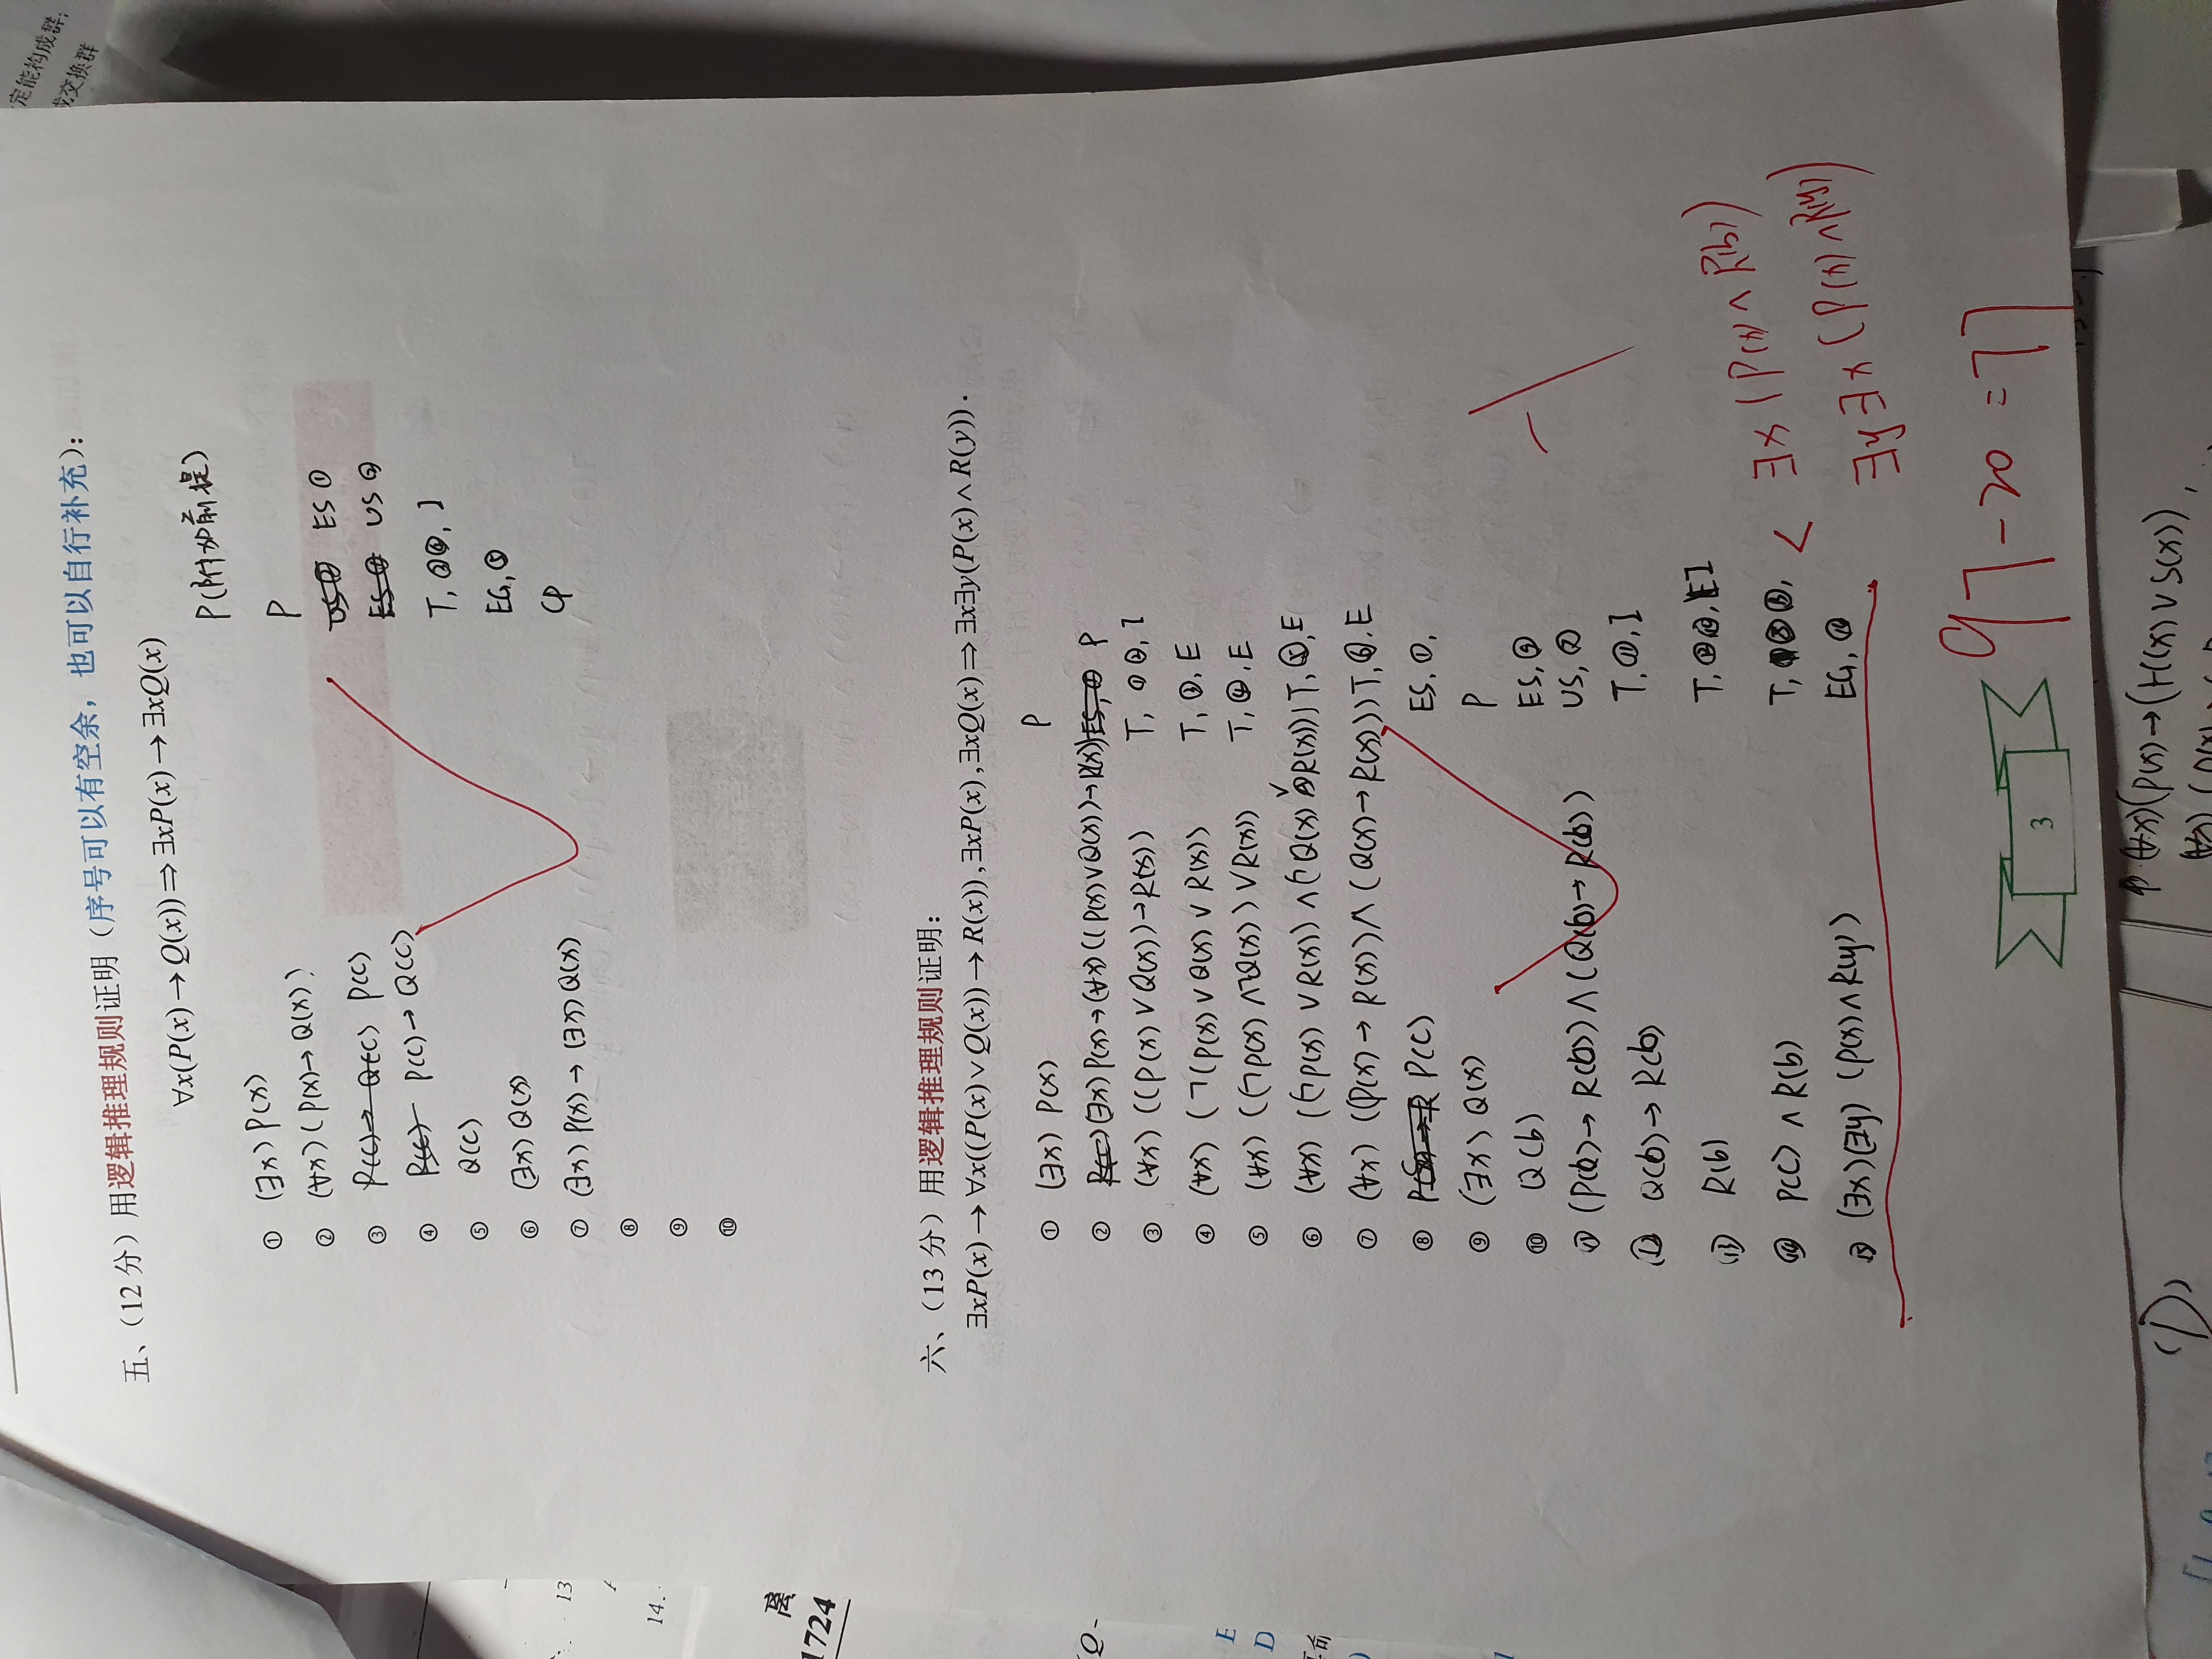 定能构成群；
成交换群
五、（12 分）用逻辑推理规则证明（序号可以有空余，也可以自行补充）：
∀x(P(x)→Q(x))⇒∃xP(x)→∃xQ(x)
① (∃x) P(x) P(附加前提)
② (∀x) (P(x)→Q(x)) P
③ P(c)→Q(c) P(c) US② ES①
④ P(c) P(c)→Q(c) ES① US②
⑤ Q(c) T, ③④, I
⑥ (∃x) Q(x) EG, ⑤
⑦ (∃x) P(x)→(∃x) Q(x) CP
⑧
⑨
⑩
13
14.
离
1724
六、（13 分）用逻辑推理规则证明：
∃xP(x)→∀x((P(x)∨Q(x))→R(x)),∃xP(x),∃xQ(x)⇒∃x∃y(P(x)∧R(y)).
① (∃x) P(x) P
② P(c) (∃x) P(x)→(∀x) ((P(x)∨Q(x))→R(x)) ES, ① P
③ (∀x) ((P(x)∨Q(x))→R(x)) T, ①②, I
④ (∀x) (¬(P(x)∨Q(x)∨R(x)) T, ③, E
⑤ (∀x) ((¬P(x)∧¬Q(x))∨R(x)) T, ④, E
⑥ (∀x) ((¬P(x)∨R(x))∧(¬Q(x)∨R(x))) T, ⑤, E
⑦ (∀x) ((P(x)→R(x))∧(Q(x)→R(x))) T, ⑥, E
⑧ P(c) ES, ①,
⑨ (∃x) Q(x) P
⑩ Q(b) ES, ⑨
⑪ (P(b)→R(b))∧(Q(b)→R(b)) US, ⑦
⑫ Q(b)→R(b) T, ⑪, I
⑬ R(b) T, ⑫⑩, I
⑭ P(c)∧R(b) T, ⑧⑬,
⑮ (∃x)(∃y) (P(x)∧R(y)) EG, ⑭
-1
< ∃x(P(x)∧R(b))
∃y∃x(P(x)∧R(y))
97-20=77
3
(1)
(∀x)(P(x)→(H(x)∨S(x)),